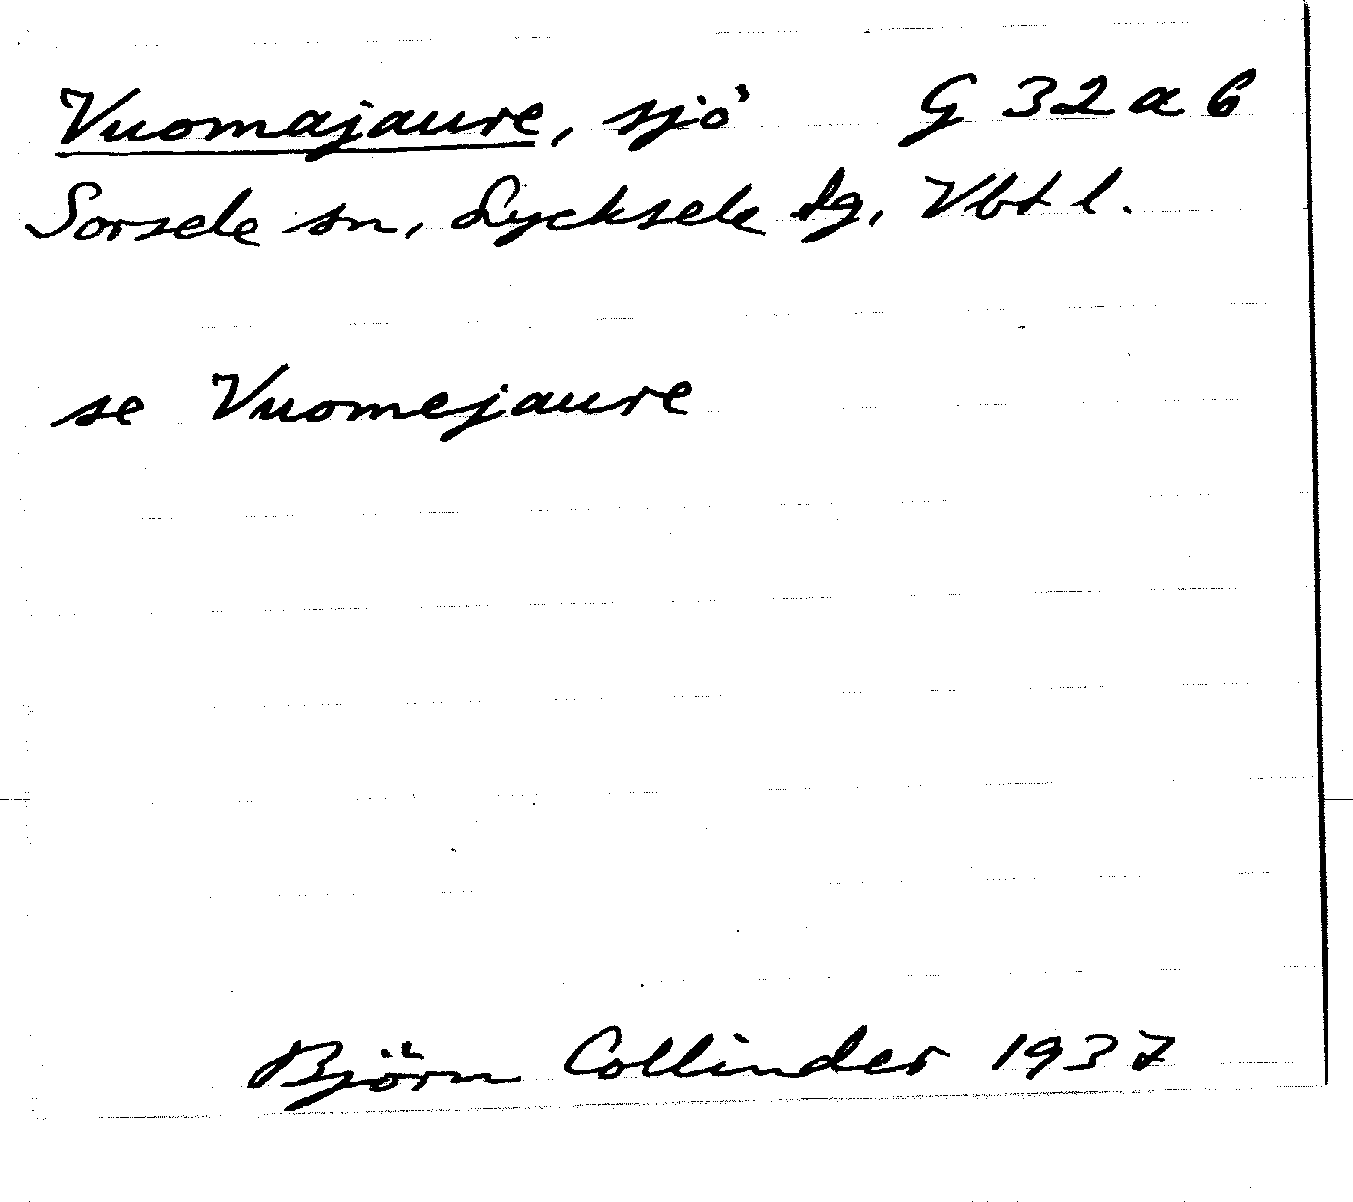 Vuomajaure, sjö G 32 a b
Sorsele sn, Lycksele tg, Vbt l.
se Vuomejaure
Björn Collinder 1937